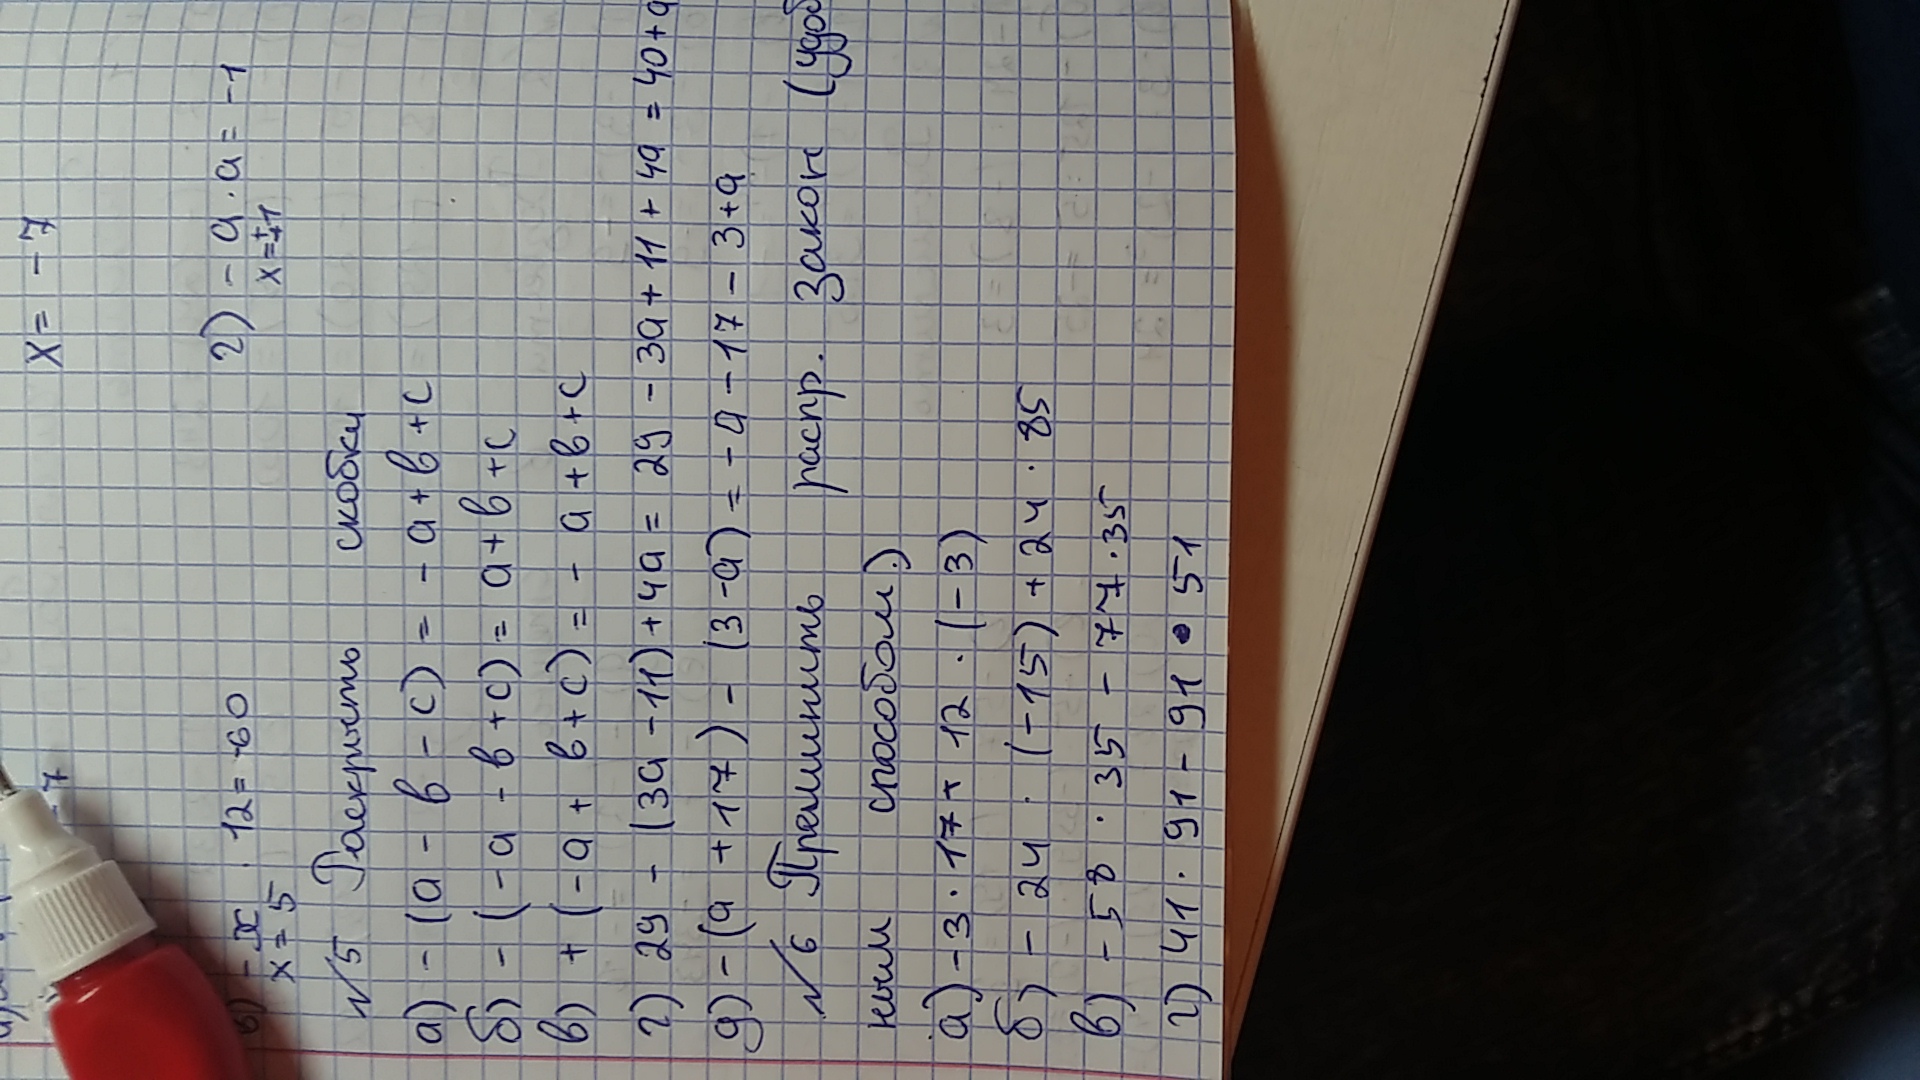 x = - 7
= 7
в) - x · 12 = -60 г) - a · a = -1
x = 5 x = ±1
№5 Раскрыть скобки
а) - (a - в - c) = - a + в + c
б) - (- a - в + c) = a + в + c
в) + (- a + в + c) = - a + в + c
г) 29 - (3a - 11) + 4a = 29 - 3a + 11 + 4a = 40 + a
д) - (a + 17) - (3 - a) = - a - 17 - 3 + a
№6 Применить распр. закон (удоб
ным способом.)
а) - 3 · 17 + 12 · (- 3)
б) - 24 · (- 15) + 24 · 85
в) - 58 · 35 - 77 · 35
г) 41 · 91 - 91 · 51